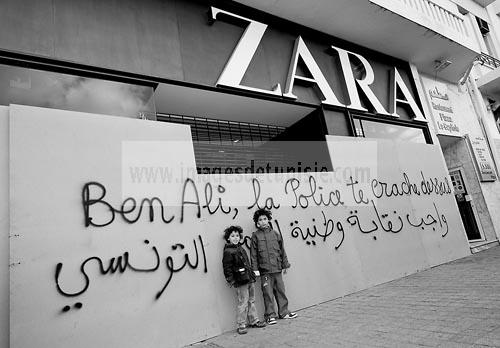 ZARA
www.imagesdetunisie.com
Ben Ali, la Police te Crache dessus
واجب نقابة وطنية
التونسي